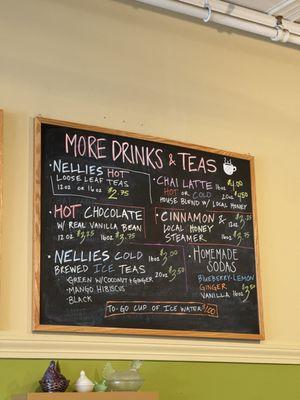 MORE DRINKS & TEAS
·NELLIES HOT
LOOSE LEAF TEAS
12oz OR 16oz $2.75
·CHAI LATTE 16oz $4.00
HOT OR COLD 20oz $4.50
HOUSE BLEND W/ LOCAL HONEY
·HOT CHOCOLATE
W/ REAL VANILLA BEAN
12oz $3.25 16oz $3.75
·CINNAMON &
LOCAL HONEY
STEAMER
12oz $3.25
16oz $3.75
·NELLIES COLD 16oz $3.00
BREWED ICE TEAS 20oz $3.50
·GREEN W/ COCONUT & GINGER
·MANGO HIBISCUS
·BLACK
·HOMEMADE
SODAS
BLUEBERRY-LEMON
GINGER
VANILLA 16oz $3.50
TO-GO CUP OF ICE WATER